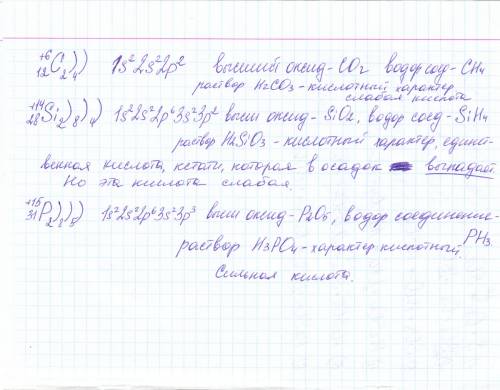 +6 12 C 2 ) 4 ) 1s² 2s² 2p² высший оксид - CO2 водор соед - CH4
раствор H2CO3 - кислотный характер
слабая кислота
+14 28 Si 2 ) 8 ) 4 ) 1s² 2s² 2p⁶ 3s² 3p² высш оксид - SiO2, водор соед - SiH4
раствор H2SiO3 - кислотный характер, единст-
венная кислота, кстати, которая в осадок выпадает.
Но эта кислота слабая.
+15 31 P 2 ) 8 ) 5 ) 1s² 2s² 2p⁶ 3s² 3p³ высш оксид - P2O5, водор соединение -
PH3
раствор H3PO4 - характер кислотный.
Сильная кислота.